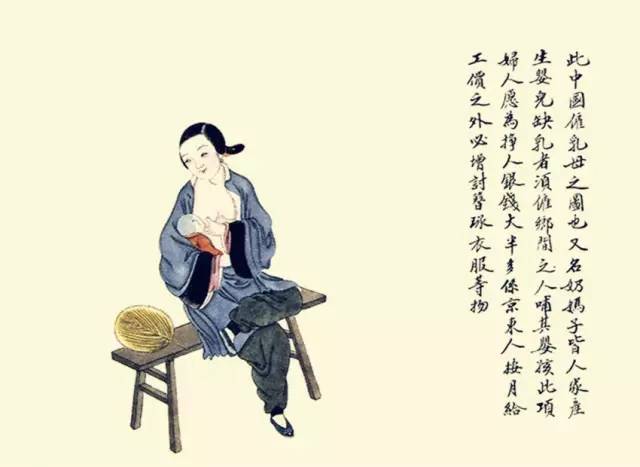 此中國僱乳母之圖也又名奶媽子皆人家産
生嬰兒缺乳者須僱鄉間之人哺其嬰孩此項
婦人愿為掙人銀錢大半多係京東人按月給
工價之外必增討簪珠衣服等物